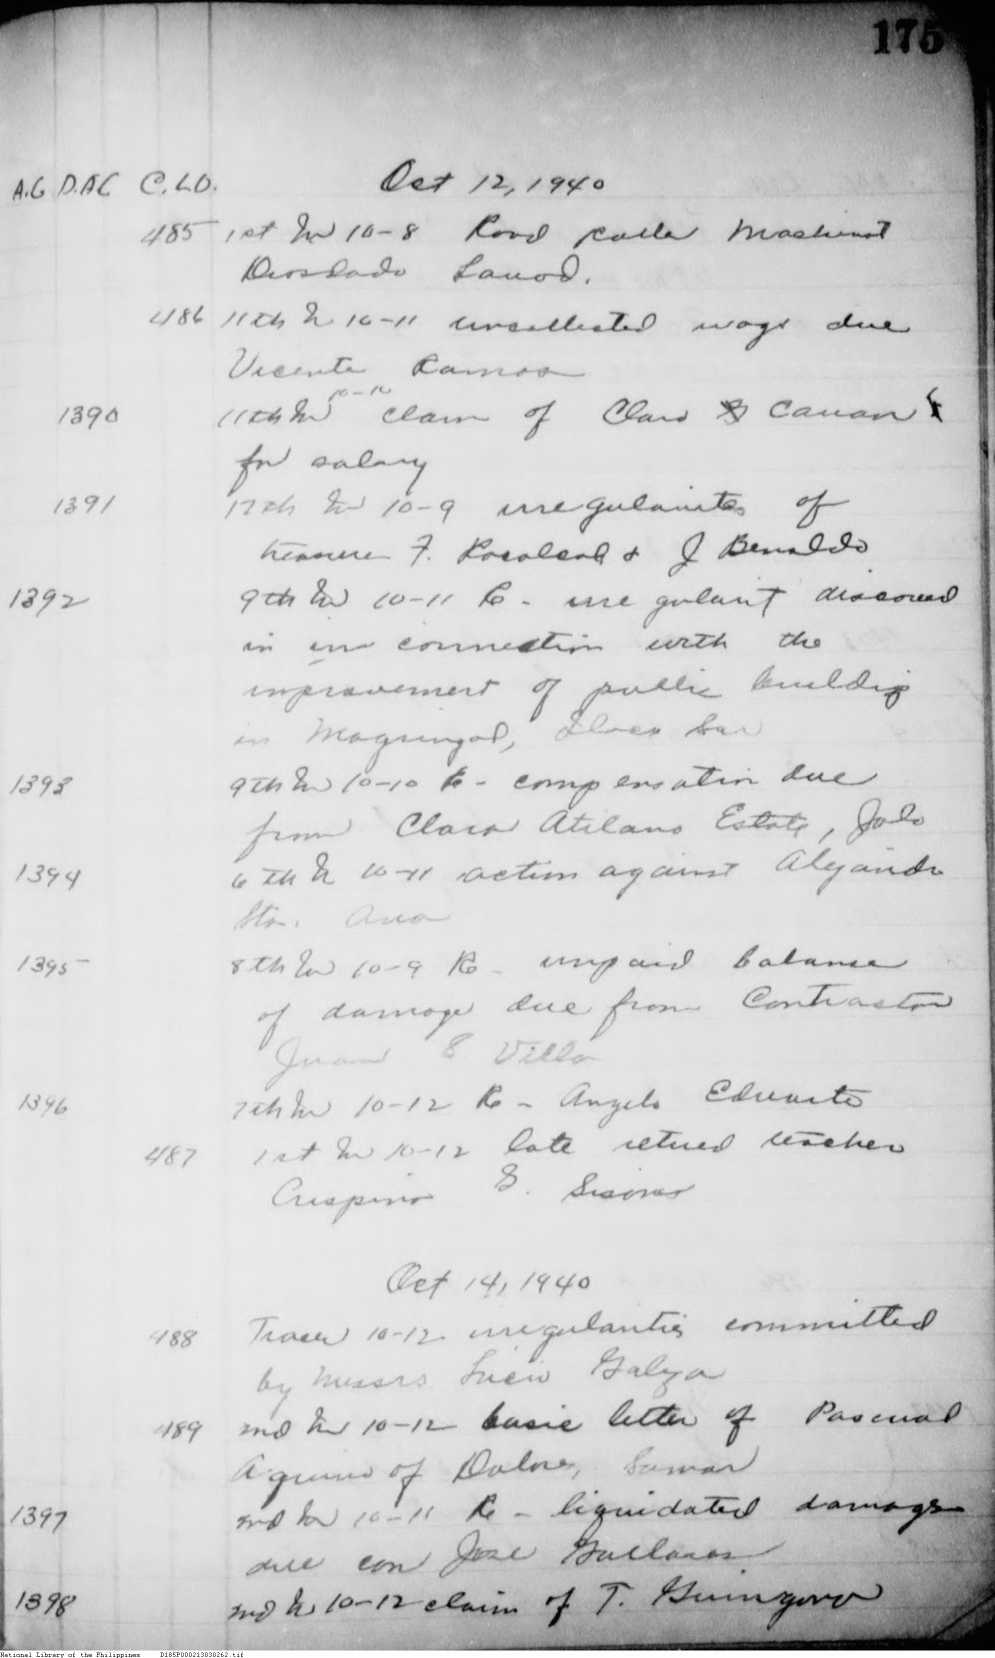 175
A.G D.AC C.LO. Oct 12, 1940
485 1st In 10-8 Road roller Machinist
Diosdado Lanod.
486 11th In 10-11 uncollected wage due
Vicente Ramos
10-10
1390 11th In claim of Claro Canan
for salary
1391 12th In 10-9 irregularities of
treasurer F. & J Benaldo
1392 9th In 10-11 Re - irregularit discovered
in in connection with the
improvement of public building
in Magsingal, Ilocos Sur
1393 9th In 10-10 Re - compensation due
from Clara Atilano Estate, Jolo
1394 6th In 10-11 action against Alejandro
Sta. Ana
1395 8th In 10-9 Re - unpaid balance
of damage due from Contractor
Juan E Villa
1396 7th In 10-12 Re - Angelo Eduarte
487 1st In 10-12 late retired teacher
Crispino S. Sisones
Oct 14, 1940
488 Tracer 10-12 irregularities committed
by Messrs Lucio
489 2nd In 10-12 basic letter of Pascual
Aquino of Dolores, Samar
1397 2nd In 10-11 Re - liquidated damages
due con Jose
1398 2nd In 10-12 claim of T. Guingona
National Library of the Philippines D185P000213830262.tif